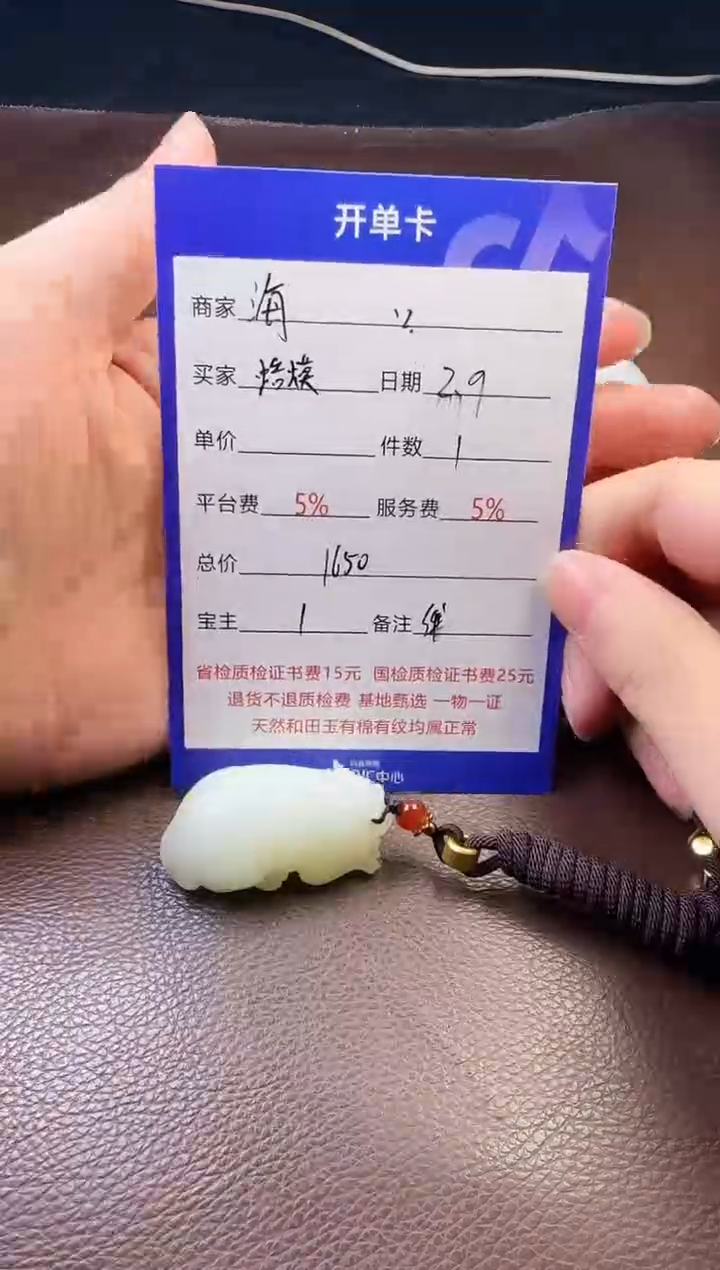 开单卡
商家 海
买家 日期 2.9
单价 件数 1
平台费 5% 服务费 5%
总价 1650
宝主 1 备注
省检质检证书费15元 国检质检证书费25元
退货不退质检费 基地甄选 一物一证
天然和田玉有棉有纹均属正常
中心